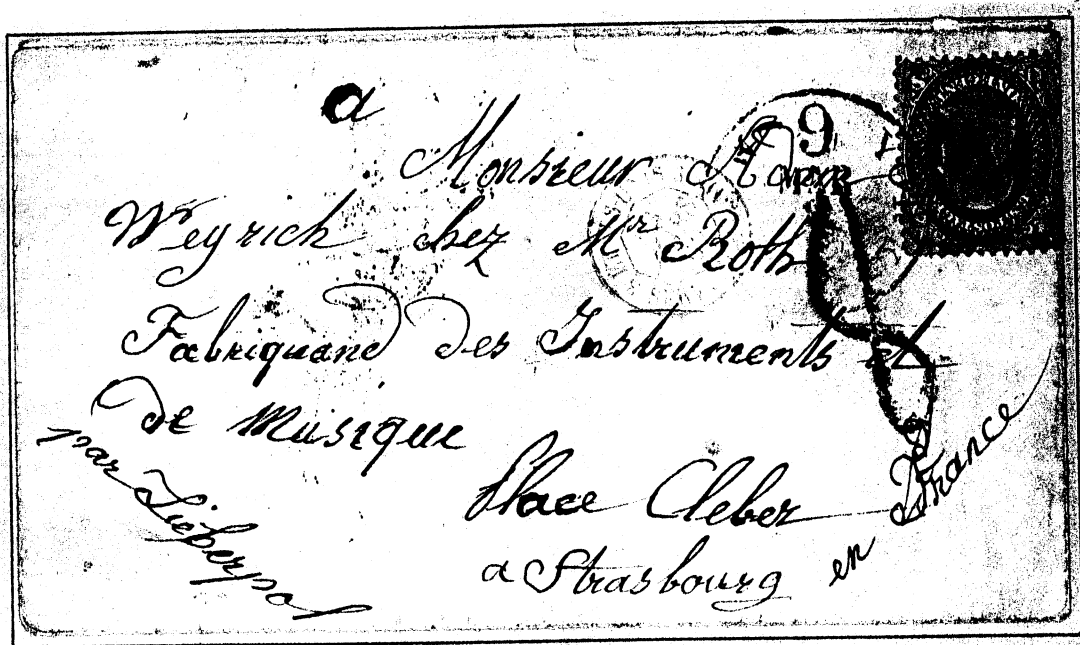 a
Monsieur
Weyrich chez Mr Roth
Fabriquand des Instruments et
de Musique
Place Cleber
a Strasbourg en France
par Lieberpol
9